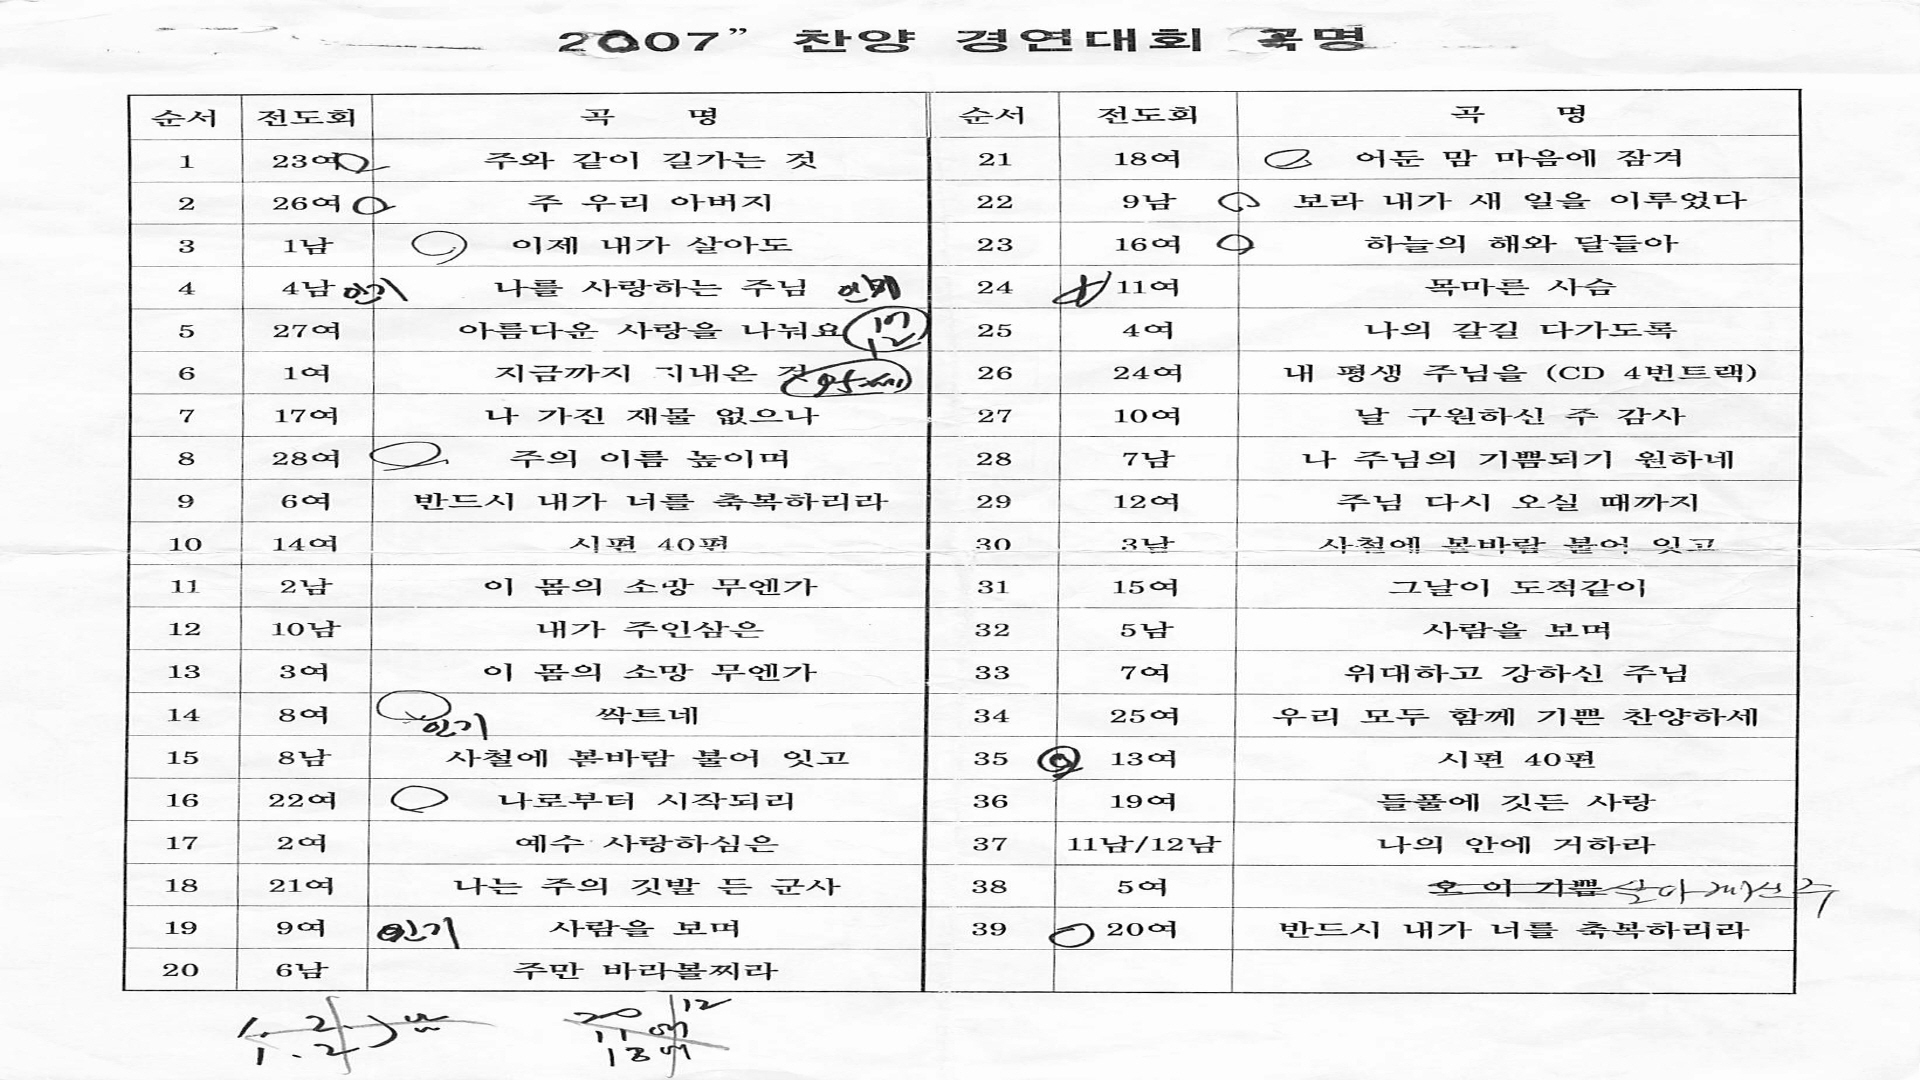 2007” 찬양 경연대회 곡명
순서 전도회 곡 명 순서 전도회 곡 명
1 23여 주와 같이 길가는 것 21 18여 어둔 맘 마음에 잠겨
2 26여 주 우리 아버지 22 9남 보라 내가 새 일을 이루었다
3 1남 이제 내가 살아도 23 16여 하늘의 해와 달들아
4 4남 인기 나를 사랑하는 주님 인기 24 11여 목마른 사슴
5 27여 아름다운 사랑을 나눠요 25 4여 나의 갈길 다가도록
6 1여 지금까지 지내온 것 26 24여 내 평생 주님을 (CD 4번트랙)
7 17여 나 가진 재물 없으나 27 10여 날 구원하신 주 감사
8 28여 주의 이름 높이며 28 7남 나 주님의 기쁨되기 원하네
9 6여 반드시 내가 너를 축복하리라 29 12여 주님 다시 오실 때까지
10 14여 시편 40편 30 3남 사철에 봄바람 불어 잇고
11 2남 이 몸의 소망 무엔가 31 15여 그날이 도적같이
12 10남 내가 주인삼은 32 5남 사람을 보며
13 3여 이 몸의 소망 무엔가 33 7여 위대하고 강하신 주님
14 8여 인기 싹트네 34 25여 우리 모두 함께 기쁜 찬양하세
15 8남 사철에 봄바람 불어 잇고 35 13여 시편 40편
16 22여 나로부터 시작되리 36 19여 들풀에 깃든 사랑
17 2여 예수 사랑하심은 37 11남/12남 나의 안에 거하라
18 21여 나는 주의 깃발 든 군사 38 5여 오 이 기쁨 살아계신 주
19 9여 인기 사람을 보며 39 20여 반드시 내가 너를 축복하리라
20 6남 주만 바라볼찌라